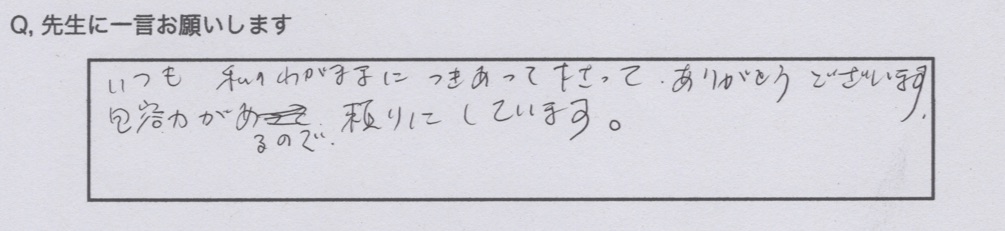 Q, 先生に一言お願いします
いつも 私のわがままに つきあって下さって、ありがとう ございます。
包容力があるので、頼りにしています。